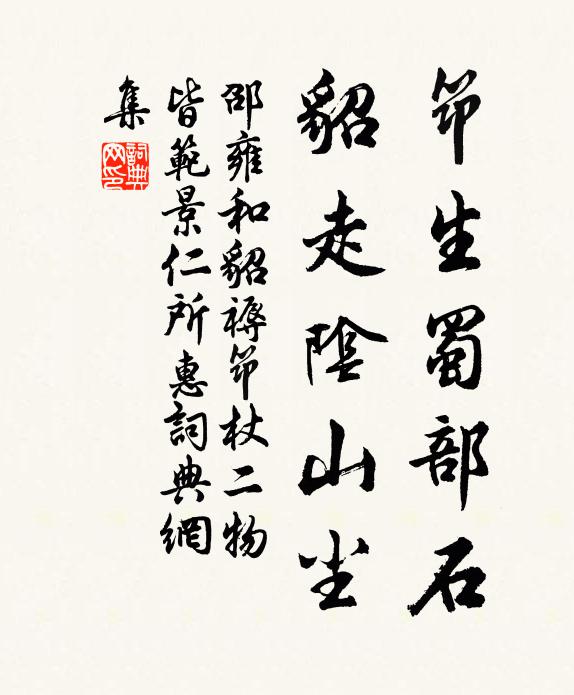 笻生蜀部石
貂走陰山尘
邵雍和貂褥笻杖二物
皆範景仁所惠詞典網
集
詞典网印